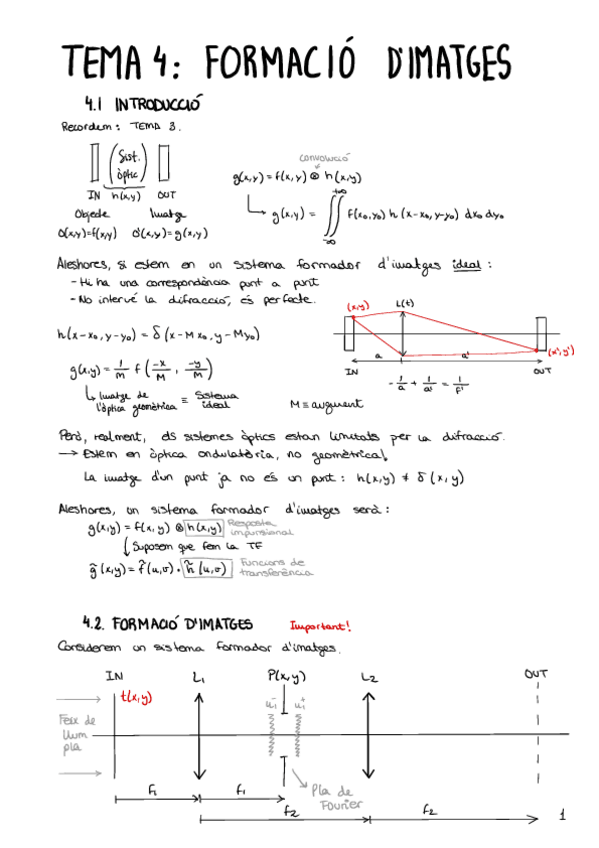 TEMA 4: FORMACIÓ D'IMATGES
4.1 INTRODUCCIÓ
Recordem: TEMA 3.
(Sist. òptic)
IN h(x,y) OUT
Objecte Imatge
O(x,y)=f(x,y) O'(x,y)=g(x,y)
convolució
g(x,y) = f(x,y) ⊗ h(x,y)
g(x,y) = ∬ f(x₀,y₀) h(x-x₀, y-y₀) dx₀ dy₀
+∞
-∞
Aleshores, si estem en un sistema formador d'imatges ideal:
- Hi ha una correspondència punt a punt
- No intervé la difracció, és perfecte.
h(x-x₀, y-y₀) = δ(x-Mx₀, y-My₀)
g(x,y) = 1/M f(-x/M, -y/M)
Imatge de l'òptica geomètrica ≡ Sistema ideal
M ≡ augment
(x,y) L(t)
a a' (x',y')
IN OUT
-1/a + 1/a' = 1/f'
Però, realment, els sistemes òptics estan limitats per la difracció.
→ Estem en òptica ondulatòria, no geomètrica!
La imatge d'un punt ja no és un punt: h(x,y) ≠ δ(x,y)
Aleshores, un sistema formador d'imatges serà:
g(x,y) = f(x,y) ⊗ h(x,y) Resposta impulsional
Suposem que fem la TF
g̃(x,y) = f̃(u,v) · h̃(u,v) Funcions de transferència
4.2. FORMACIÓ D'IMATGES Important!
Considerem un sistema formador d'imatges.
IN L₁ P(x,y) L₂ OUT
t(x,y)
u₁⁻ u₁⁺
Feix de llum pla
f₁ f₁ Pla de Fourier
f₂ f₂
1